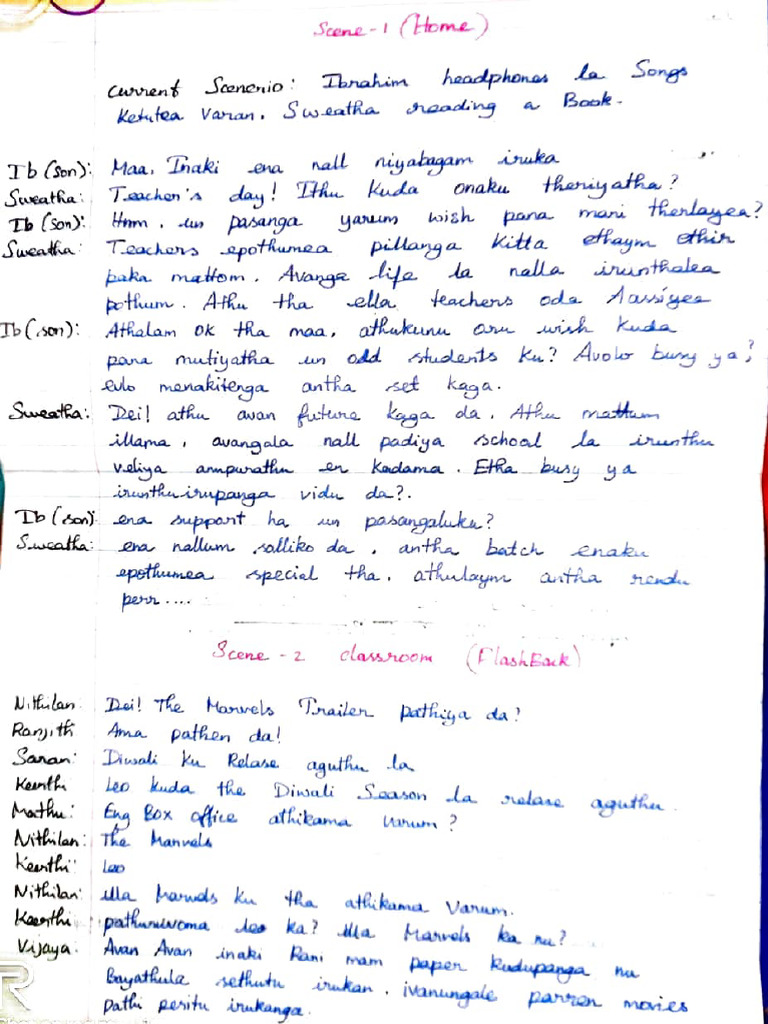 Scene-1 (Home)
Current Scenerio: Ibrahim headphones la Songs
Ketutea Varan. Sweatha reading a Book.
Ib (son): Maa, Inaki ena nall niyabagam iruka
Sweatha: Teacher's day! Ithu Kuda onaku theriyatha?
Ib (son): Hmm. un pasanga yarum wish pana mari therlayea?
Sweatha: Teachers epothumea pillanga kitta ethaym ethir
paka mattom. Avanga life la nalla irunthalea
pothum. Athu tha ella teachers oda Aassiyea
Ib (son): Athalam ok tha maa, athukunu oru wish kuda
pana mutiyatha un odd students ku? Avolo busy ya?
evlo menakitenga antha set kaga.
Sweatha: Dei! athu avan future kaga da. Athu mattum
illama, avangala nall padiya school la irunthu
veliya annpurathu en Kadama. Etha busy ya
irunthu irupanga vidu da?.
Ib (son) ena support ha un pasangaluku?
Sweatha: ena nallum solliko da, antha batch enaku
epothumea special tha. athulaym antha rendu
perr....
Scene - 2 classroom (FlashBack)
Nithilan: Dei! The Marvels Trailer pathiya da?
Ranjith Ama pathen da!
Saran: Diwali Ku Relase aguthu la
Keerthi Leo kuda the Diwali Season la relase aguthu.
Mathu: Eng Box office athikama varum?
Nithilan: The Marvels
Keerthi: Leo
Nithilan: illa Marvels ku tha athikama Varum.
Keerthi pathuruvoma leo ka? illa Marvels ka nu?
Vijaya: Avan Avan inaki Rani mam paper kudupanga nu
Bayathula sethutu irukan. ivanungale parren movies
pathi peritu irukanga.